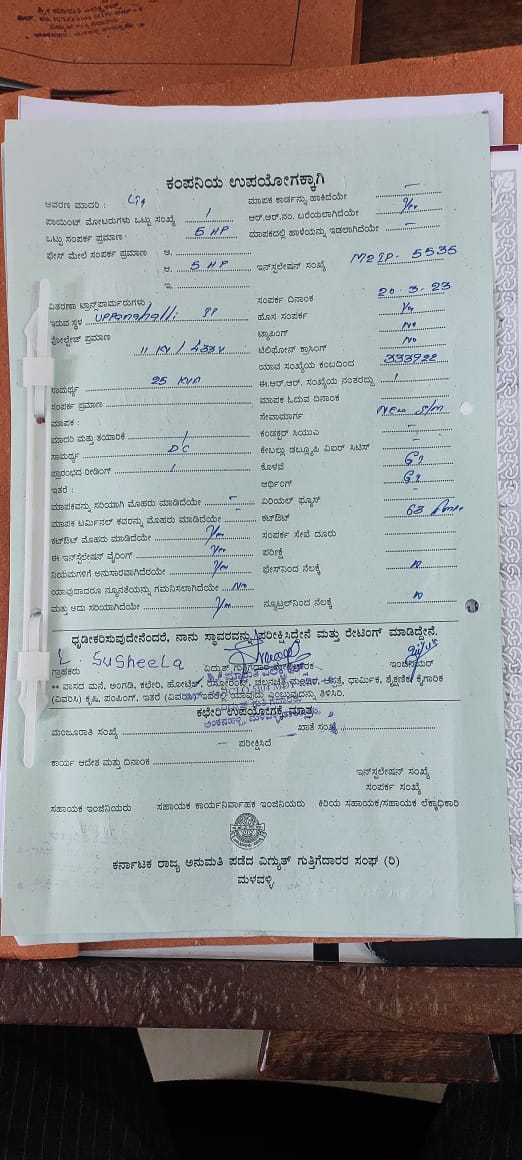 ಕಂಪನಿಯ ಉಪಯೋಗಕ್ಕಾಗಿ
ಆವರಣ ಮಾದರಿ : Lig ಮಾಪಕ ಕಾರ್ಡನ್ನು ಹಾಕಿದೆಯೇ –
ಪಾಯಿಂಟ್ ಮೋಟರುಗಳು ಒಟ್ಟು ಸಂಖ್ಯೆ 1 ಆರ್.ಆರ್.ನಂ. ಬರೆಯಲಾಗಿದೆಯೇ
ಒಟ್ಟು ಸಂಪರ್ಕ ಪ್ರಮಾಣ : 5 HP ಮಾಪಕದಲ್ಲಿ ಹಾಳೆಯನ್ನು ಇಡಲಾಗಿದೆಯೇ –
ಫೇಸ್ ಮೇಲೆ ಸಂಪರ್ಕ ಪ್ರಮಾಣ ಅ.
ಆ. 5 HP ಇನ್‌ಸ್ಟಲೇಷನ್ ಸಂಖ್ಯೆ M2IP. 5535
ಇ.
ವಿತರಣಾ ಟ್ರಾನ್ಸ್‌ಫಾರ್ಮರುಗಳು ಸಂಪರ್ಕ ದಿನಾಂಕ 20.3.23
ಇರುವ ಸ್ಥಳ uppanahalli ಹೊಸ ಸಂಪರ್ಕ Yes
ವೋಲ್ಟೇಜ್ ಪ್ರಮಾಣ ಟ್ಯಾಪಿಂಗ್ No
11 KV / 433V ಟೆಲಿಫೋನ್ ಕ್ರಾಸಿಂಗ್ No
ಯಾವ ಸಂಖ್ಯೆಯ ಕಂಬದಿಂದ 333922
ಸಾಮರ್ಥ್ಯ 25 KVA ಈ.ಆರ್.ಆರ್. ಸಂಖ್ಯೆಯ ನಂತರದ್ದು 1
ಸಂಪರ್ಕ ಪ್ರಮಾಣ ಮಾಪಕ ಓದುವ ದಿನಾಂಕ
ಮಾಪಕ : ಸೇವಾಮಾರ್ಗ New S/m
ಮಾದರಿ ಮತ್ತು ತಯಾರಿಕೆ 1 ಕಂಡಕ್ಟರ್ ಸಿಯುಎ –
ಸಾಮರ್ಥ್ಯ DC ಕೇಬಲ್ಲು ಡಬ್ಲ್ಯೂಪಿ ವಿಐರ್ ಸಿಟಿಸ್ –
ಪ್ರಾರಂಭದ ರೀಡಿಂಗ್ 1 ಕೊಳವೆ GI
ಇತರೆ : ಅರ್ಥಿಂಗ್ GI
ಮಾಪಕವನ್ನು ಸರಿಯಾಗಿ ಮೊಹರು ಮಾಡಿದೆಯೇ – ಏರಿಯಲ್ ಫ್ಯೂಸ್ –
ಮಾಪಕ ಟರ್ಮಿನಲ್ ಕವರನ್ನು ಮೊಹರು ಮಾಡಿದೆಯೇ – ಕಟ್‌ಔಟ್ 63 Amp
ಕಟ್‌ಔಟ್ ಮೊಹರು ಮಾಡಿದೆಯೇ Yes ಸಂಪರ್ಕ ಸೇವೆ ದೂರು
ಈ ಇನ್‌ಸ್ಟಲೇಷನ್ ವೈರಿಂಗ್ Yes ಪರೀಕ್ಷೆ
ನಿಯಮಗಳಿಗೆ ಅನುಸಾರವಾಗಿದೆಯೇ Yes ಫೇಸ್‌ನಿಂದ ನೆಲಕ್ಕೆ
ಯಾವುದಾದರೂ ನ್ಯೂನತೆಯನ್ನು ಗಮನಿಸಲಾಗಿದೆಯೇ No
ಮತ್ತು ಅದು ಸರಿಯಾಗಿದೆಯೇ Yes ನ್ಯೂಟ್ರಲ್‌ನಿಂದ ನೆಲಕ್ಕೆ
ಧೃಡೀಕರಿಸುವುದೇನೆಂದರೆ, ನಾನು ಸ್ಥಾವರವನ್ನು ಪರೀಕ್ಷಿಸಿದ್ದೇನೆ ಮತ್ತು ರೇಟಿಂಗ್ ಮಾಡಿದ್ದೇನೆ.
Susheela
ಗ್ರಾಹಕರು ವಿದ್ಯುತ್ ಗುತ್ತಿಗೆದಾರ ಇಂಜಿನಿಯರ್
** ವಾಸದ ಮನೆ, ಅಂಗಡಿ, ಕಛೇರಿ, ಹೋಟೆಲ್, ರೆಸ್ಟೋರೆಂಟ್, ಚಲನಚಿತ್ರ ಮಂದಿರ, ಆಸ್ಪತ್ರೆ, ಧಾರ್ಮಿಕ, ಶೈಕ್ಷಣಿಕ ಕೈಗಾರಿಕ
(ವಿವರಿಸಿ) ಕೃಷಿ, ಪಂಪಿಂಗ್, ಇತರೆ (ವಿವರಿಸಿ) ಇವುಗಳಲ್ಲಿ ಯಾವುದು ಎಂಬುವುದನ್ನು ತಿಳಿಸಿರಿ.
ಕಛೇರಿ ಉಪಯೋಗಕ್ಕೆ ಮಾತ್ರ
ಮಂಜೂರಾತಿ ಸಂಖ್ಯೆ ಖಾತೆ ಸಂಖ್ಯೆ
ಪರೀಕ್ಷಿಸಿದೆ
ಕಾರ್ಯ ಆದೇಶ ಮತ್ತು ದಿನಾಂಕ
ಇನ್‌ಸ್ಟಲೇಷನ್ ಸಂಖ್ಯೆ
ಸಂಪರ್ಕ ಸಂಖ್ಯೆ
ಸಹಾಯಕ ಇಂಜಿನಿಯರು ಸಹಾಯಕ ಕಾರ್ಯನಿರ್ವಾಹಕ ಇಂಜಿನಿಯರು ಕಿರಿಯ ಸಹಾಯಕ/ಸಹಾಯಕ ಲೆಕ್ಕಾಧಿಕಾರಿ
ಕರ್ನಾಟಕ ರಾಜ್ಯ ಅನುಮತಿ ಪಡೆದ ವಿದ್ಯುತ್ ಗುತ್ತಿಗೆದಾರರ ಸಂಘ (ರಿ)
ಮಳವಳ್ಳಿ